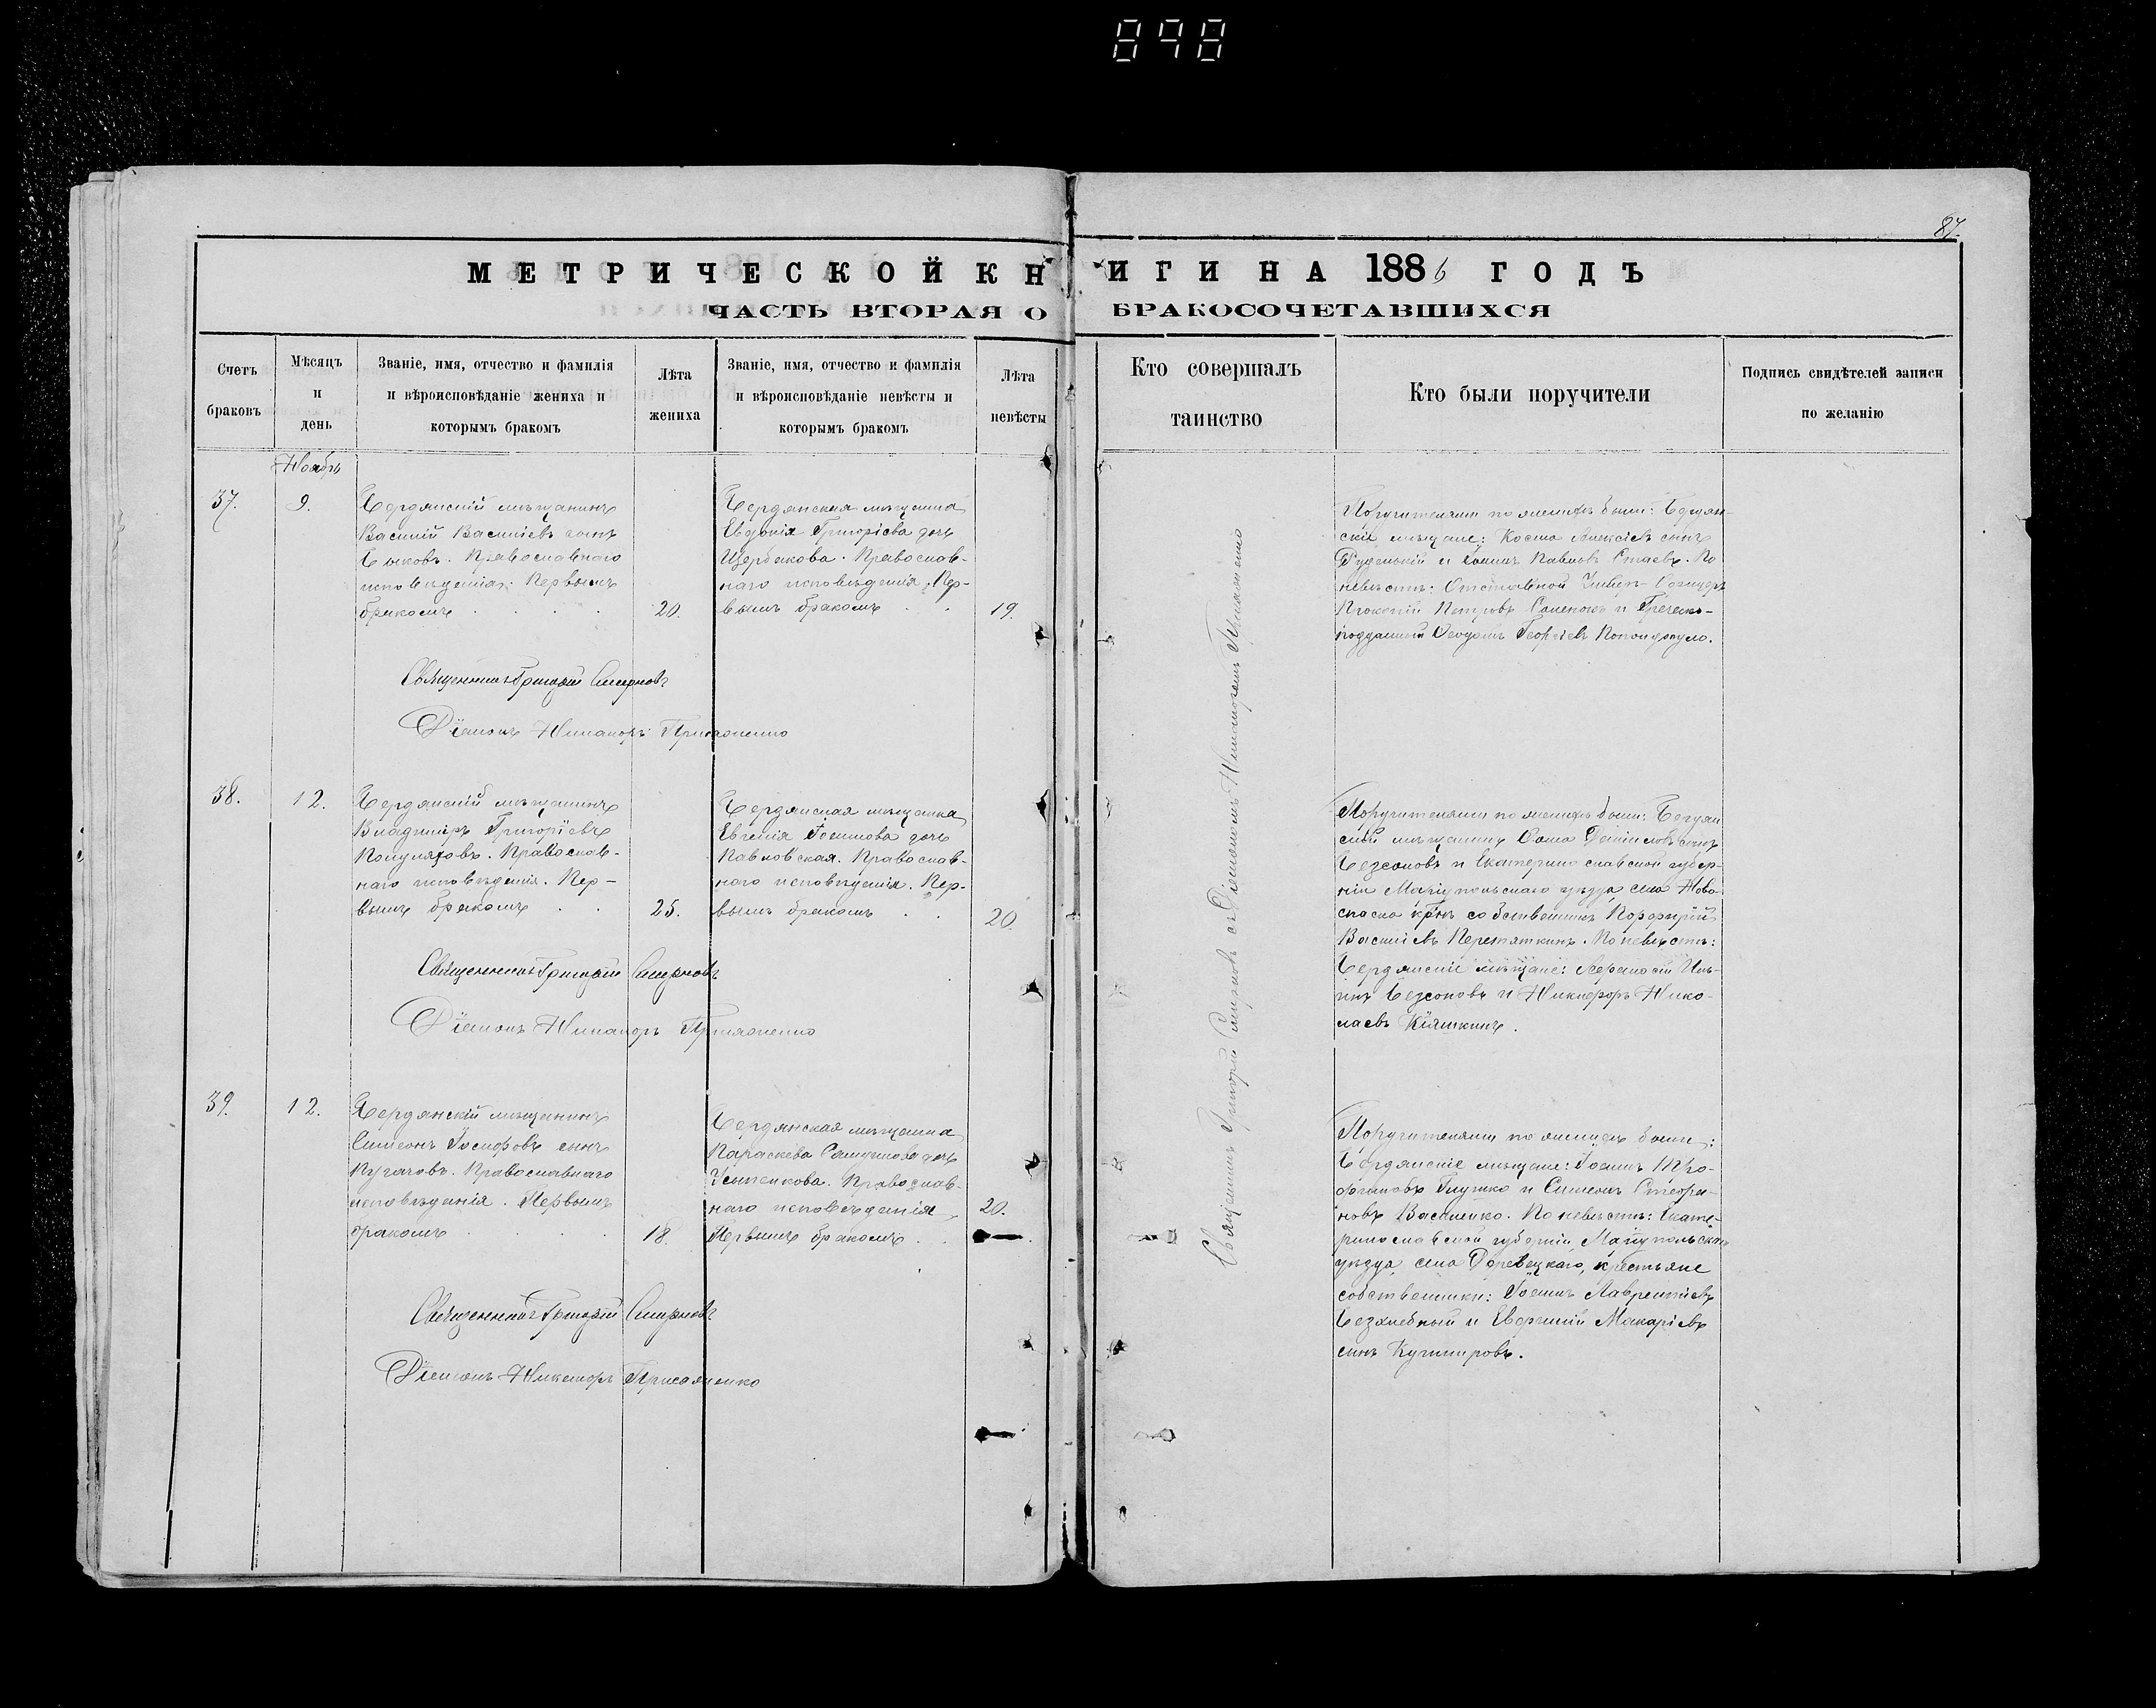 898
87.
МЕТРИЧЕСКОЙ КНИГИ НА 1886 ГОДЪ
ЧАСТЬ ВТОРАЯ О БРАКОСОЧЕТАВШИХСЯ
Счетъ браковъ
Мѣсяцъ и день
Званіе, имя, отчество и фамилія
и вѣроисповѣданіе жениха и
которымъ бракомъ
Лѣта жениха
Званіе, имя, отчество и фамилія
и вѣроисповѣданіе невѣсты и
которымъ бракомъ
Лѣта невѣсты
Кто совершалъ
таинство
Кто были поручители
Подпись свидѣтелей записи
по желанію
Ноябрь
37.
9.
Бердянскій мѣщанинъ
Василій Васильевъ сынъ
Быковъ. Православнаго
исповѣданія. Первымъ
бракомъ
20.
Бердянская мѣщанка
Евдокія Григорьева дочь
Щербакова. Православ-
наго исповѣданія. Пер-
вымъ бракомъ
19.
Поручителями по женихѣ были: Бердян-
скіе мѣщане: Косма Алексіевъ сынъ
и Іоаннъ Павловъ По
невѣстѣ: Отставной Унтеръ-Офицеръ
Прокопій Петровъ и Греческо-
подданный Георгіевъ
Священникъ Григорій Смирновъ
Діаконъ Никаноръ Присяженко
Священникъ Григорій Смирновъ съ Діакономъ Никаноромъ Присяженко
38.
12.
Бердянскій мѣщанинъ
Владиміръ Григоріевъ
Православ-
наго исповѣданія. Пер-
вымъ бракомъ
25.
Бердянская мѣщанка
Евгенія Іоаннова дочь
Павловская. Православ-
наго исповѣданія. Пер-
вымъ бракомъ
20.
Поручителями по женихѣ были: Бердян
скій мѣщанинъ Ѳома сынъ
Безсоновъ и Екатеринославской губер-
ніи Маріупольскаго уѣзда села Ново-
спаска собственникъ Порфирій
Василіевъ Перетяткинъ. По невѣстѣ:
Бердянскіе мѣщане: Аѳанасій Иль-
инъ Безсоновъ и Никифоръ Нико-
лаевъ Кіяшкинъ.
Священникъ Григорій Смирновъ
Діаконъ Никаноръ Присяженко
39.
12.
Бердянскій мѣщанинъ
Симеонъ Іосифовъ сынъ
Пугачовъ. Православнаго
исповѣданія. Первымъ
бракомъ
18.
Бердянская мѣщанка
Параскева дочь
Православ-
наго исповѣданія
Первымъ бракомъ
20.
Поручителями по женихѣ были:
Бердянскіе мѣщане: Іоаннъ Тро-
фимовъ Глушко и Симеонъ Стефа-
новъ Василенко. По невѣстѣ: Екате-
ринославской губерніи Маріупольскаго
уѣзда села крестьяне
собственники: Іоаннъ Лаврентіевъ
Безхлебный и Евфимій Макаріевъ
сынъ Кушнировъ.
Священникъ Григорій Смирновъ
Діаконъ Никаноръ Присяженко